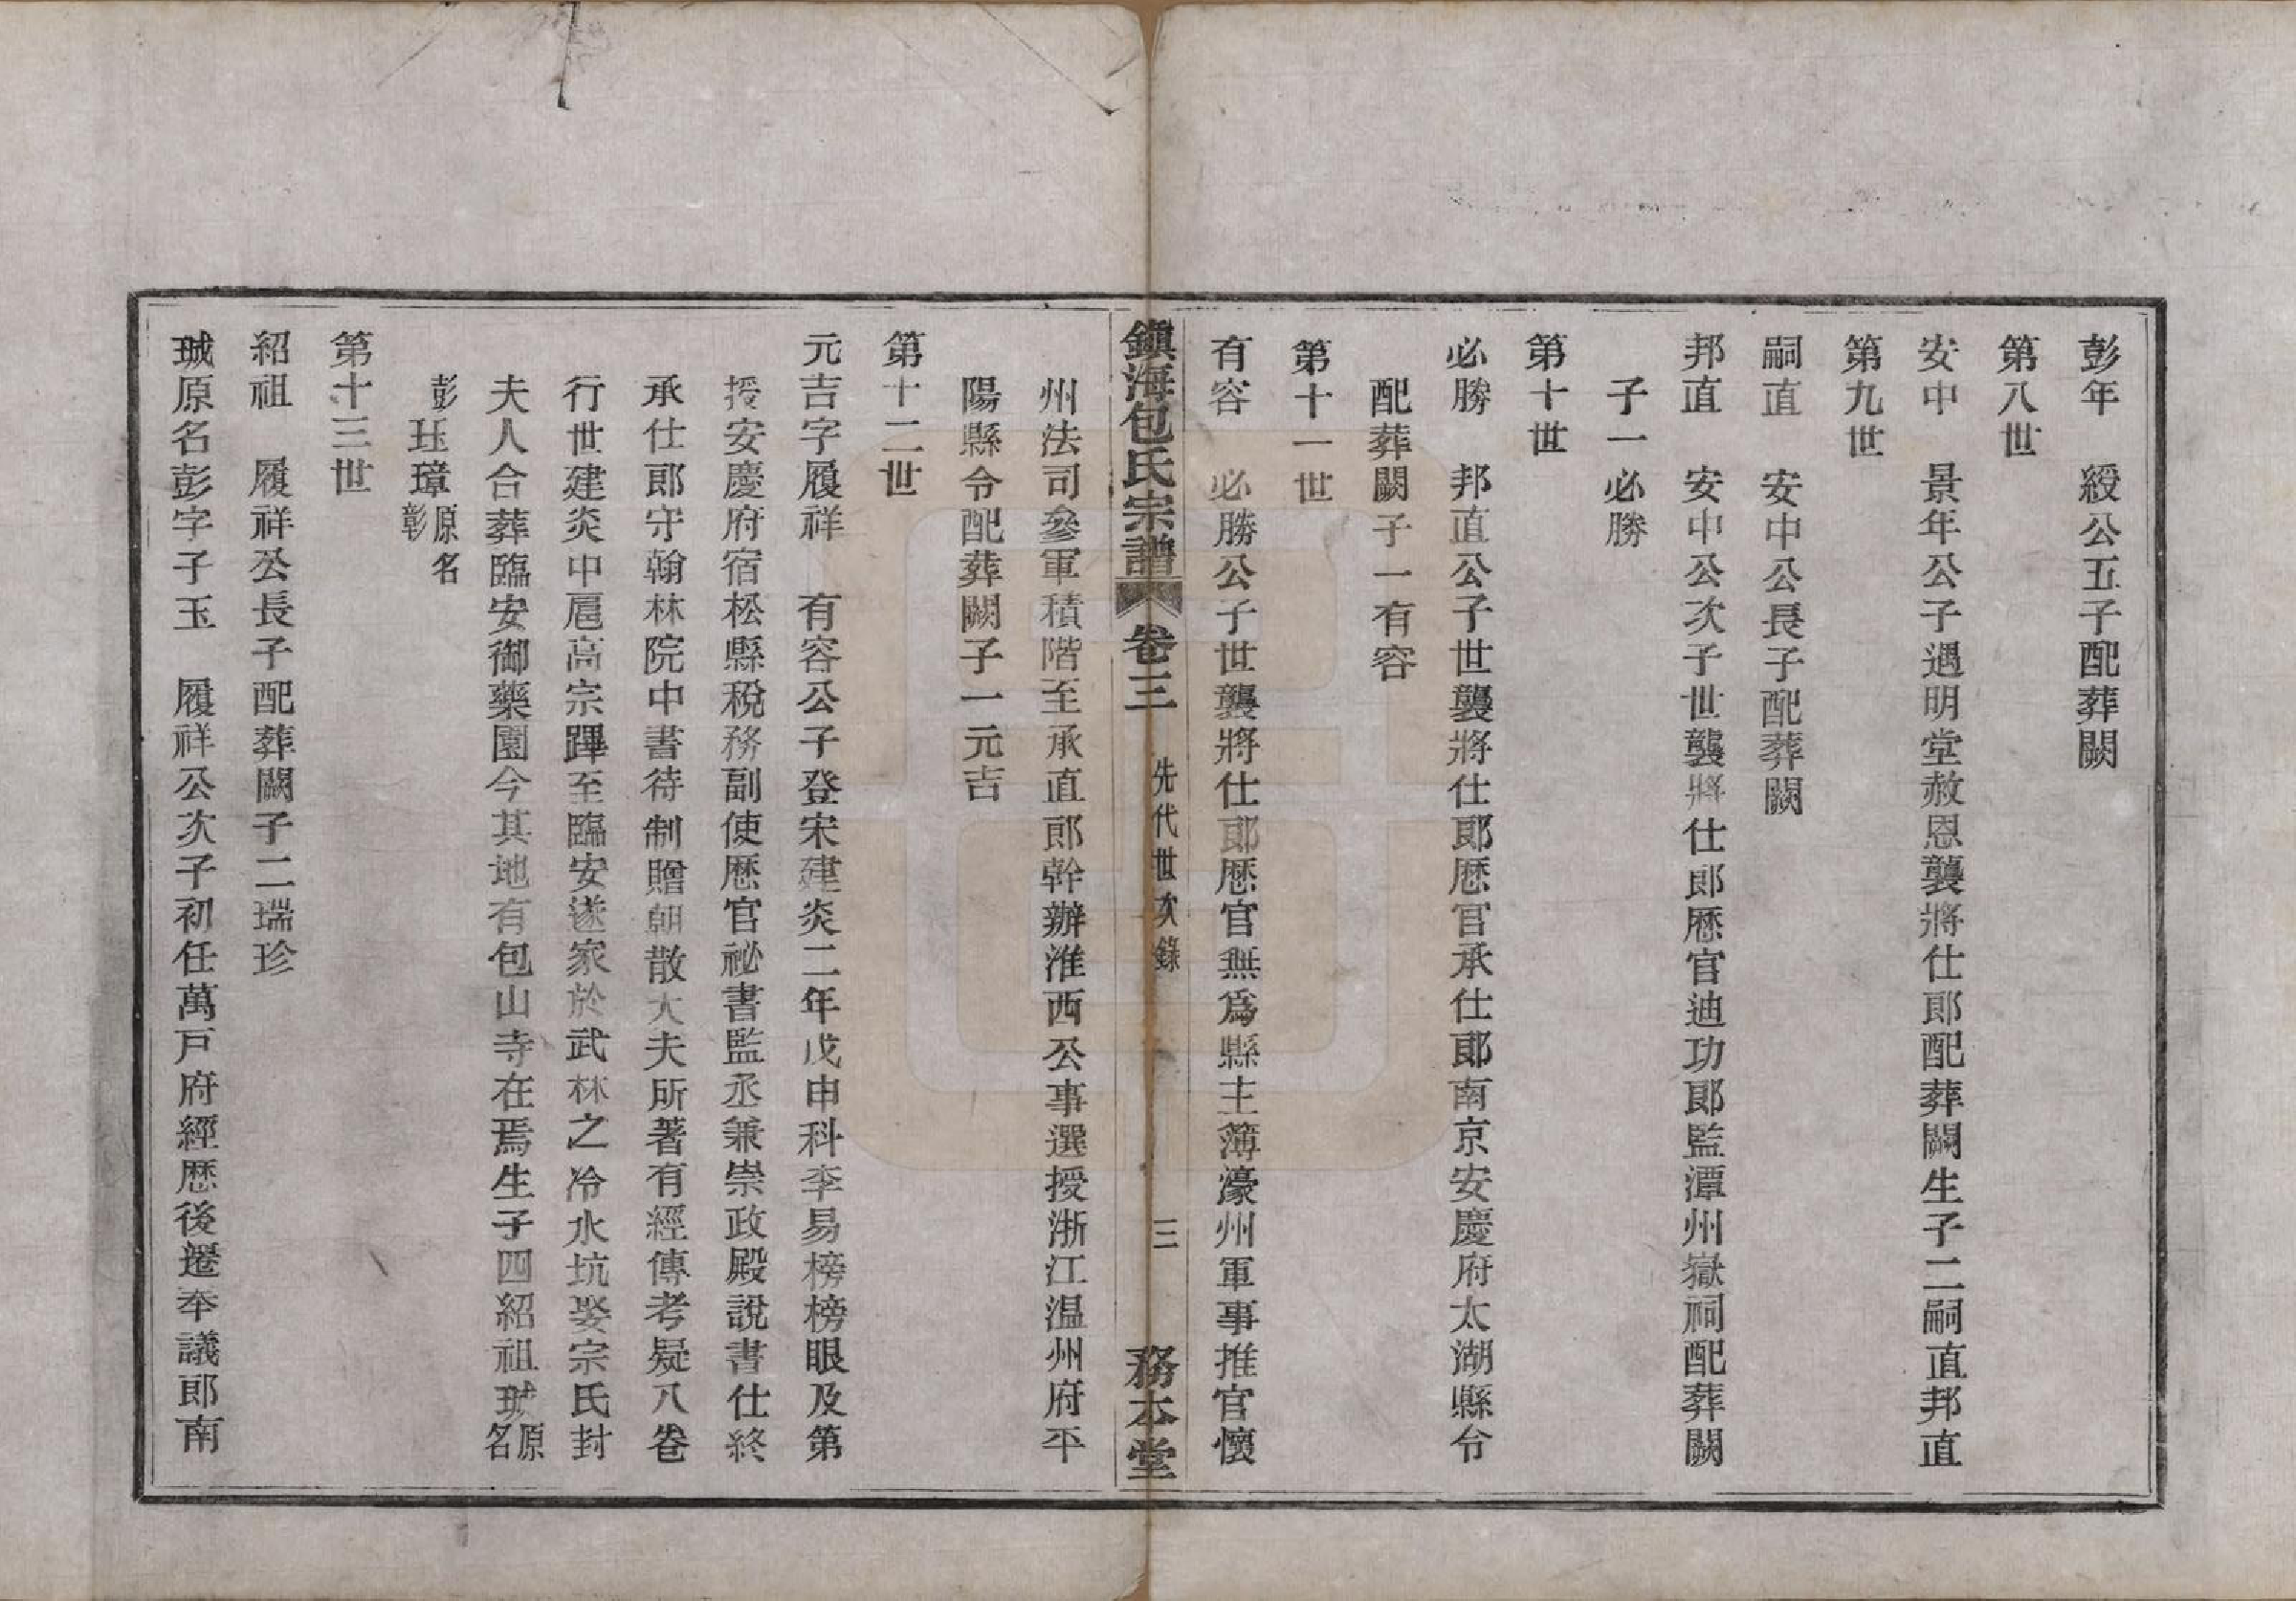 彭年　綬公五子配葬闕
第八世
安中　景年公子遇明堂赦恩襲將仕郎配葬闕生子二嗣直邦直
第九世
嗣直　安中公長子配葬闕
邦直　安中公次子世襲將仕郎歷官迪功郎監潭州嶽祠配葬闕
子一必勝
第十世
必勝　邦直公子世襲將仕郎歷官承仕郎南京安慶府太湖縣令
配葬闕子一有容
第十一世
有容　必勝公子世襲將仕郎歷官無爲縣主簿濠州軍事推官懷
鎮海包氏宗譜　卷三　先代世次錄　三　務本堂
州法司參軍積階至承直郎幹辦淮西公事選授浙江温州府平
陽縣令配葬闕子一元吉
第十二世
元吉字履祥　有容公子登宋建炎二年戊申科李易榜榜眼及第
授安慶府宿松縣稅務副使歷官祕書監丞兼崇政殿說書仕終
承仕郎守翰林院中書待制贈朝散大夫所著有經傳考疑八卷
行世建炎中扈高宗蹕至臨安遂家於武林之冷水坑娶宗氏封
夫人合葬臨安御藥園今其地有包山寺在焉生子四紹祖珹原名
彭珏璋原名彰
第十三世
紹祖　履祥公長子配葬闕子二瑞珍
珹原名彭字子玉　履祥公次子初任萬戸府經歷後遷奉議郎南